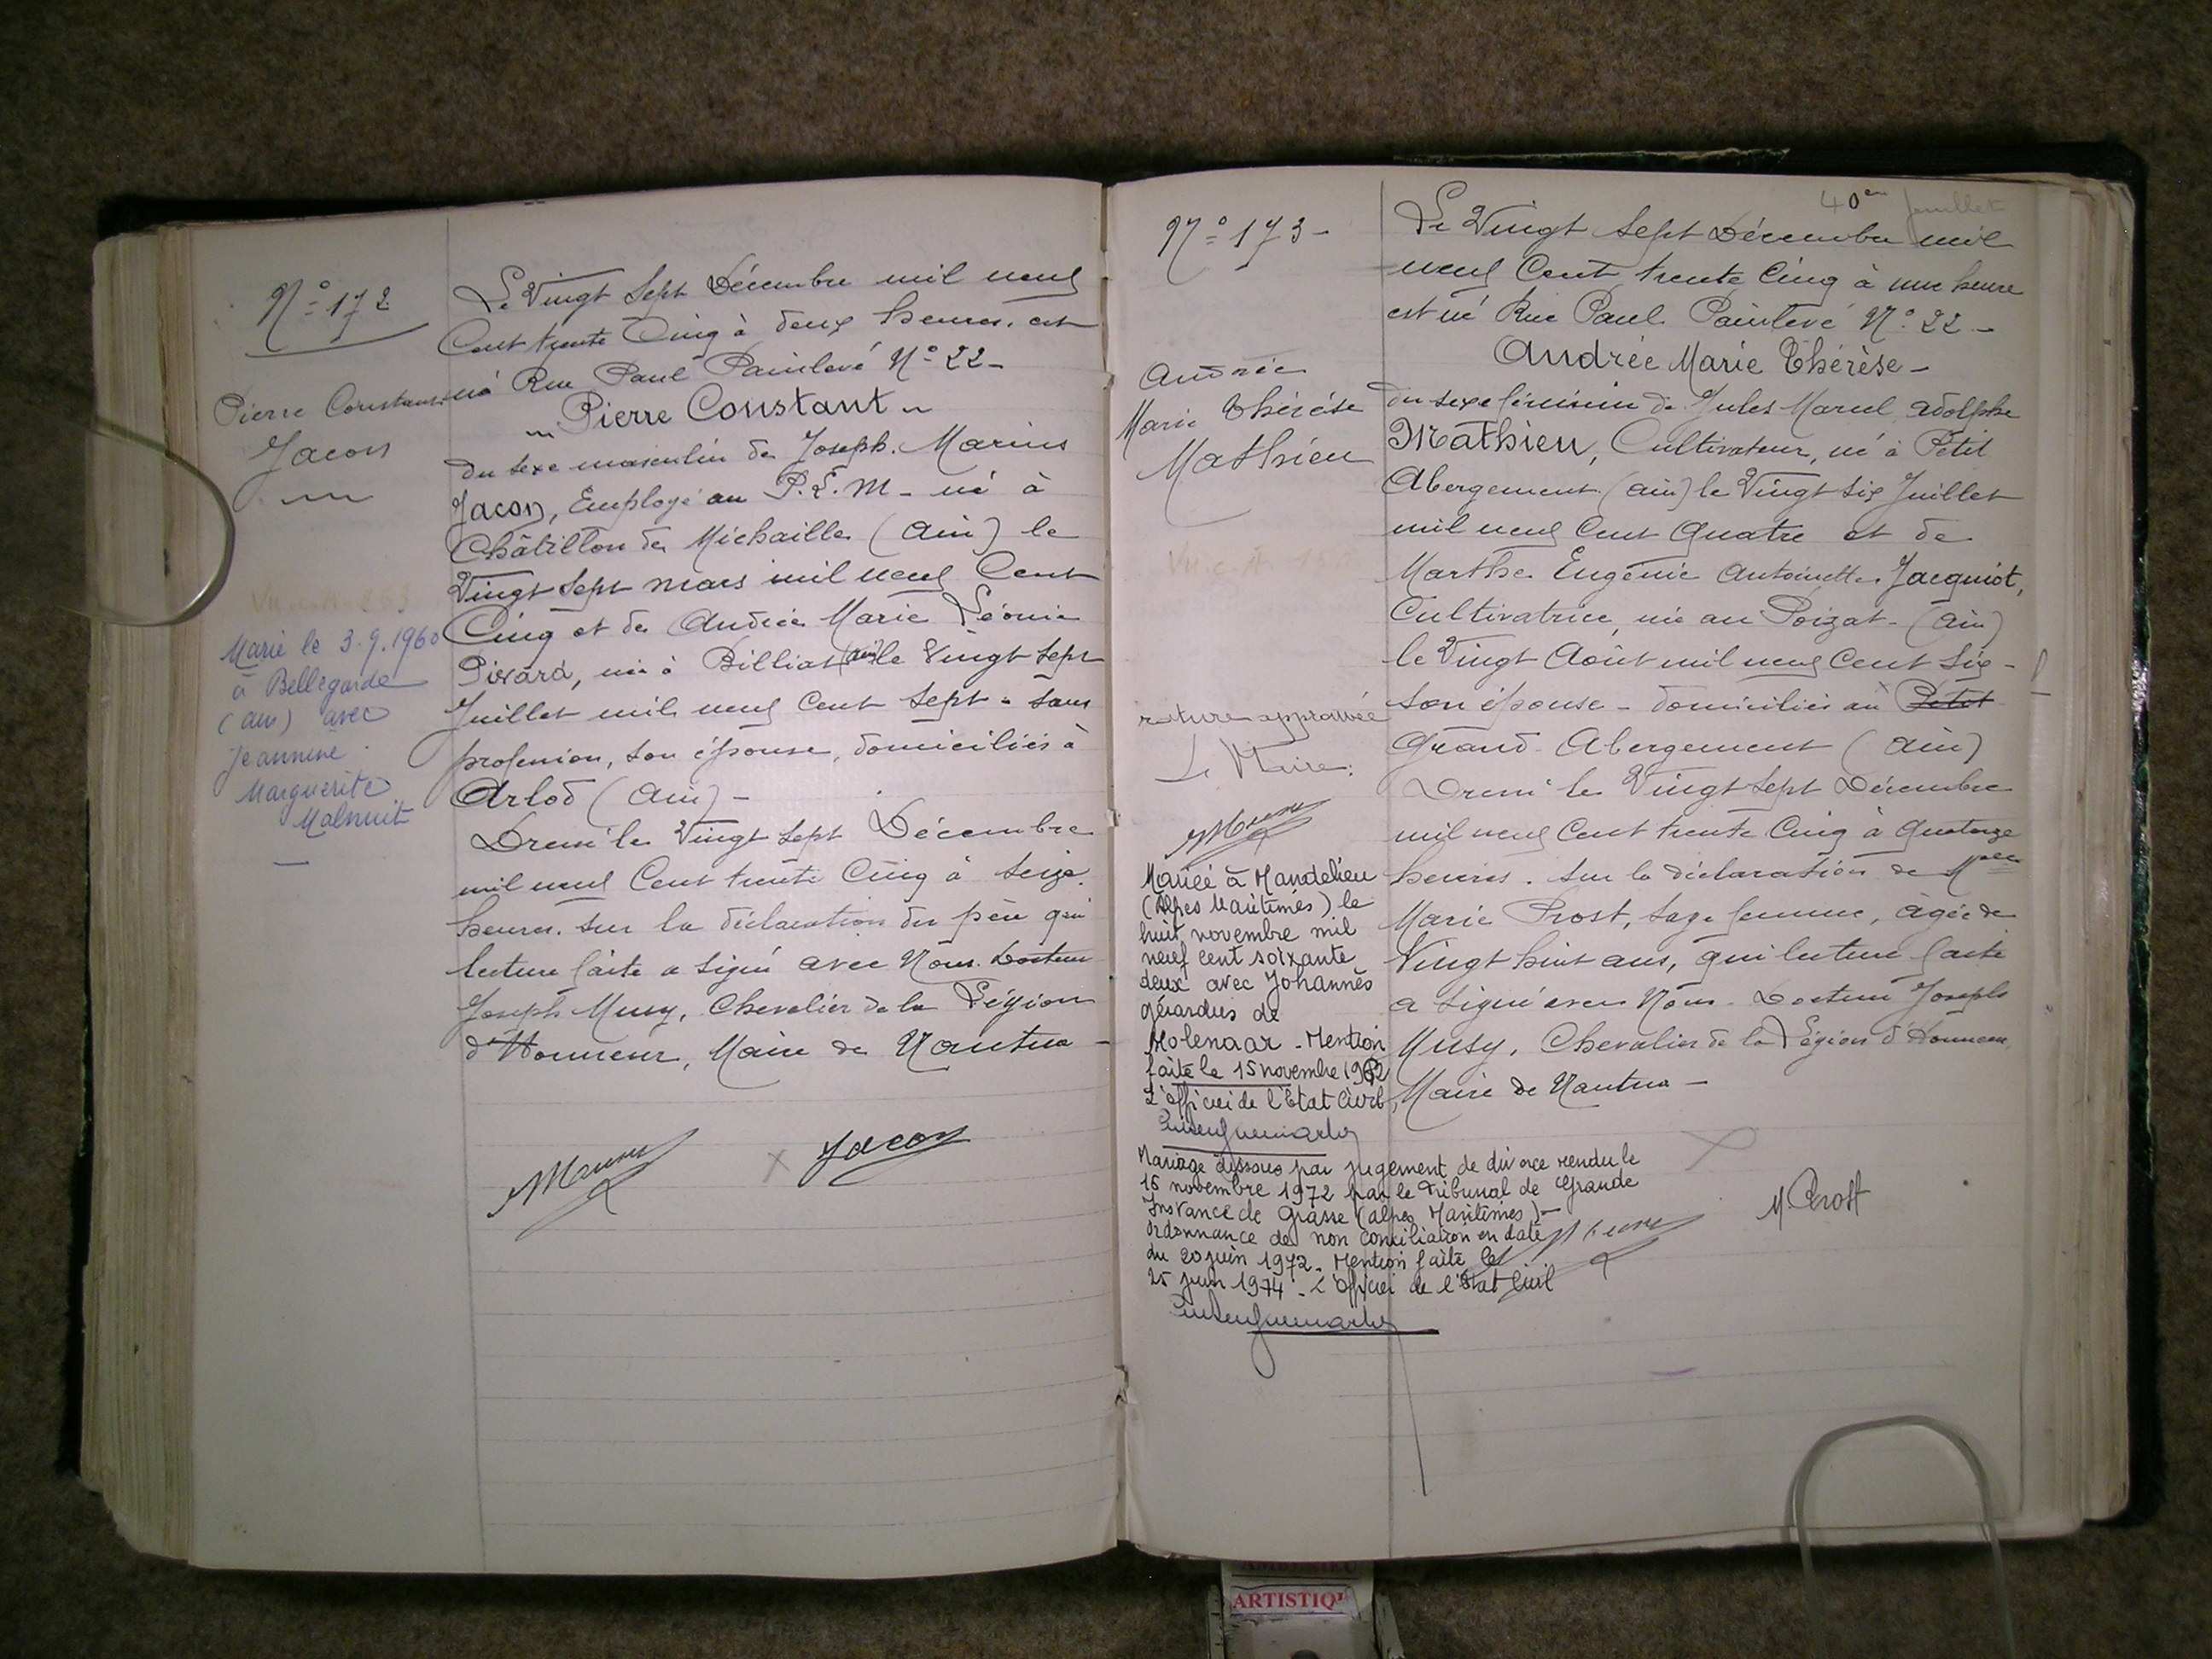 N° 172
Pierre Constant
Jacon
Marié le 3.9.1960
à Bellegarde
(ain) avec
Jeannine
Marguerite
Malnuit
Le Vingt Sept Décembre mil neuf
Cent trente Cinq à deux heures. est
né Rue Paul Painlevé N° 22 -
Pierre Constant
du sexe masculin de Joseph. Marius
Jacon, Employé au P.L.M - né à
Châtillon de Michaille (Ain) le
Vingt Sept mars mil neuf Cent
Cinq et de Andrée Marie Léonie
Pivard, née à Billiat (ain) le Vingt Sept
Juillet mil neuf cent sept - sans
profession, son épouse, domiciliés à
Arlod (Ain) -
Dressé le Vingt Sept Décembre
mil neuf Cent trente Cinq à seize
heures. sur la déclaration du père qui
lecture faite a signé avec Nous. Docteur
Joseph Musy, Chevalier de la Légion
d'Honneur, Maire de Nantua -
Jacon
40em feuillet
N° 173 -
Andrée
Marie Thérèse
Mathieu
rature approuvée
Le Maire:
Mariée à Mandelieu
(Alpes Maritimes) le
huit novembre mil
neuf cent soixante
deux avec Johannès
gérardus de
Molenaar - Mention
faite le 15 novembre 1962
L'officier de l'Etat Civil,
Mariage dissous par jugement de divorce rendu le
16 novembre 1972 par le Tribunal de Grande
Instance de Grasse (alpes Maritimes) -
Ordonnance de non conciliation en date
du 20 juin 1972. Mention faite le
25 juin 1974 - L'Officier de l'Etat Civil
Le Vingt Sept Décembre mil
neuf Cent trente Cinq à une heure
est né Rue Paul Painlevé N° 22 -
Andrée Marie Thérèse -
du sexe féminin de Jules Marcel Adolphe
Mathieu, Cultivateur, né à Petit
Abergement (ain) le Vingt six Juillet
mil neuf Cent Quatre et de
Marthe Eugénie Antoinette Jacquiot,
Cultivatrice, née au Poizat - (Ain)
le Vingt Août mil neuf Cent Six -
son épouse - domiciliés au Petit
Grand-Abergement (Ain)
Dressé le Vingt Sept Décembre
mil neuf Cent trente Cinq à quatorze
heures. sur la déclaration de Melle
Marie Prost, sage femme, âgée de
Vingt huit ans, qui lecture faite
a signé avec Nous. Docteur Joseph
Musy, Chevalier de la Légion d'Honneur,
Maire de Nantua -
M Prost
ARTISTIQ